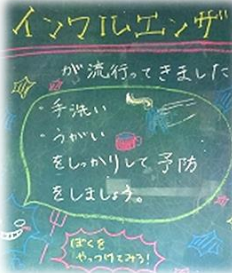 インフルエンザ
が流行ってきました
・手洗い
・うがい
をしっかりして予防
をしましょう。
ぼくを
やっつけてみろ!